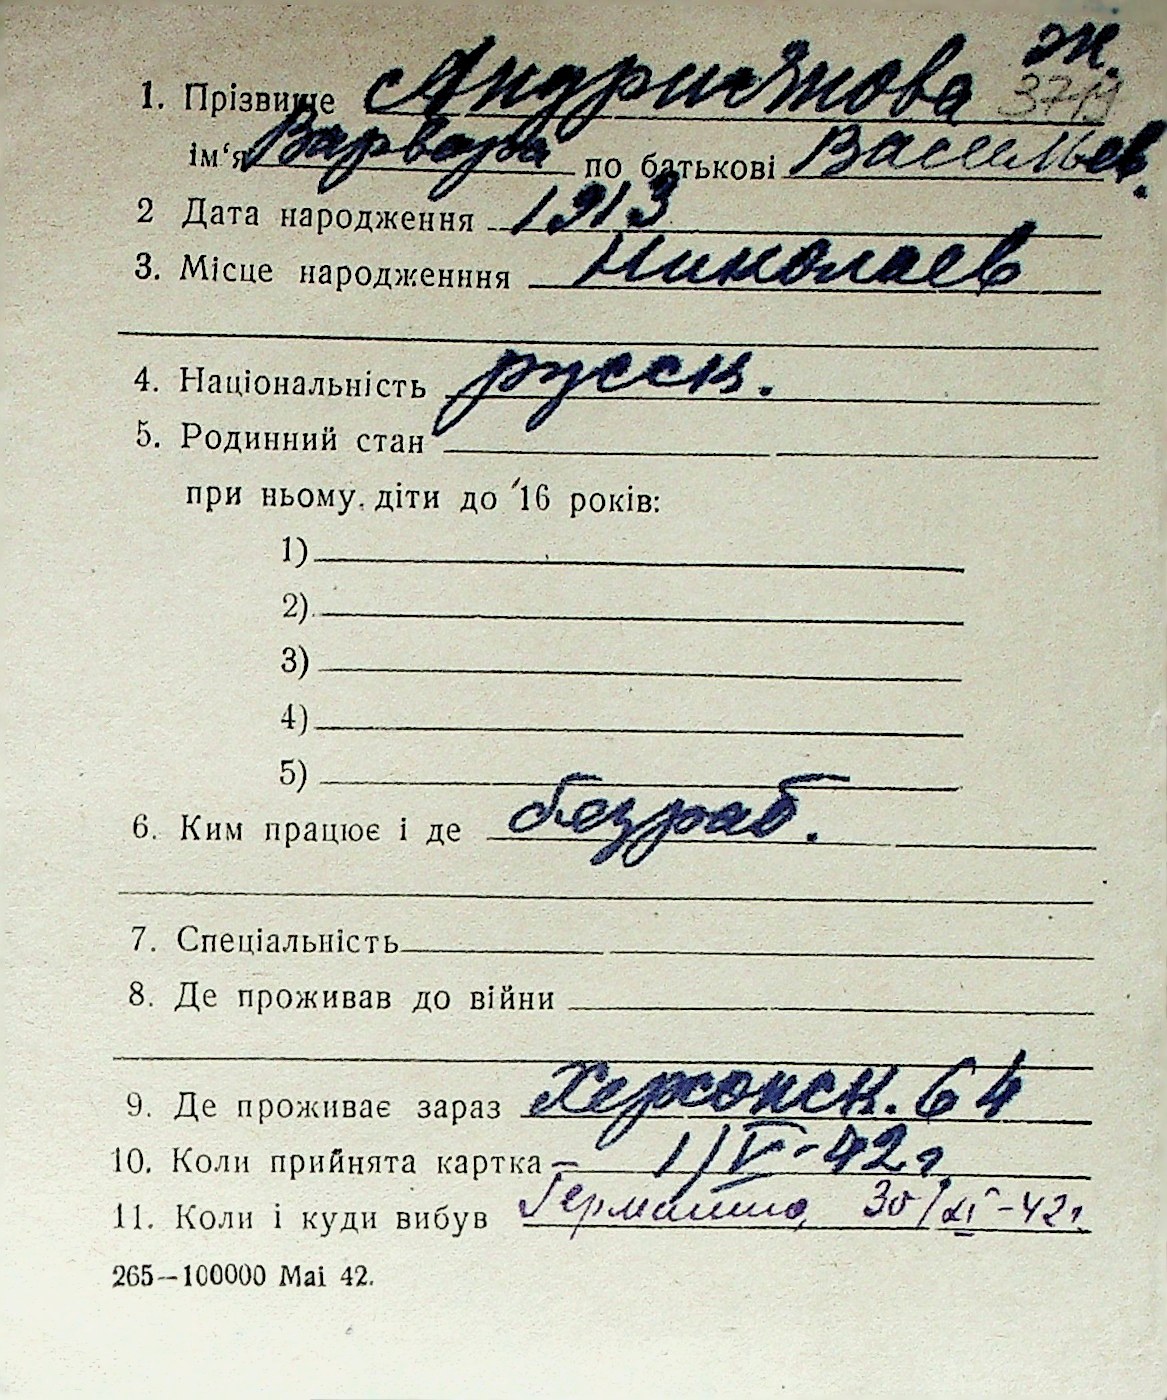 ж.
1. Прізвище Андриянова 3719
ім‘я Варвара по батькові Васильев.
2 Дата народження 1913
3. Місце народженння Николаев
4. Національність русск.
5. Родинний стан
при ньому діти до 16 років:
1)
2)
3)
4)
5)
6. Ким працює і де безраб.
7. Спеціальність
8. Де проживав до війни
9. Де проживає зараз Херсонск. 64
10. Коли прийнята картка 1/V-42г
11. Коли і куди вибув Германию, 30/XI-42г.
265—100000 Mai 42.